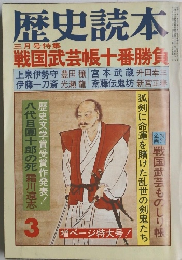 歴史読本
三月号特集
戦国武芸帳十番勝負
上泉伊勢守 豊田穣
宮本武蔵 井口朝生
伊藤一刀斎 光瀬龍
斎藤伝鬼坊 新宮正春
孤剣に命運を賭けた乱世の剣鬼たち
戦国武芸ものしり帳
歴史文学賞受賞作発表!
八代目団十郎の死
3
増ページ特大号!